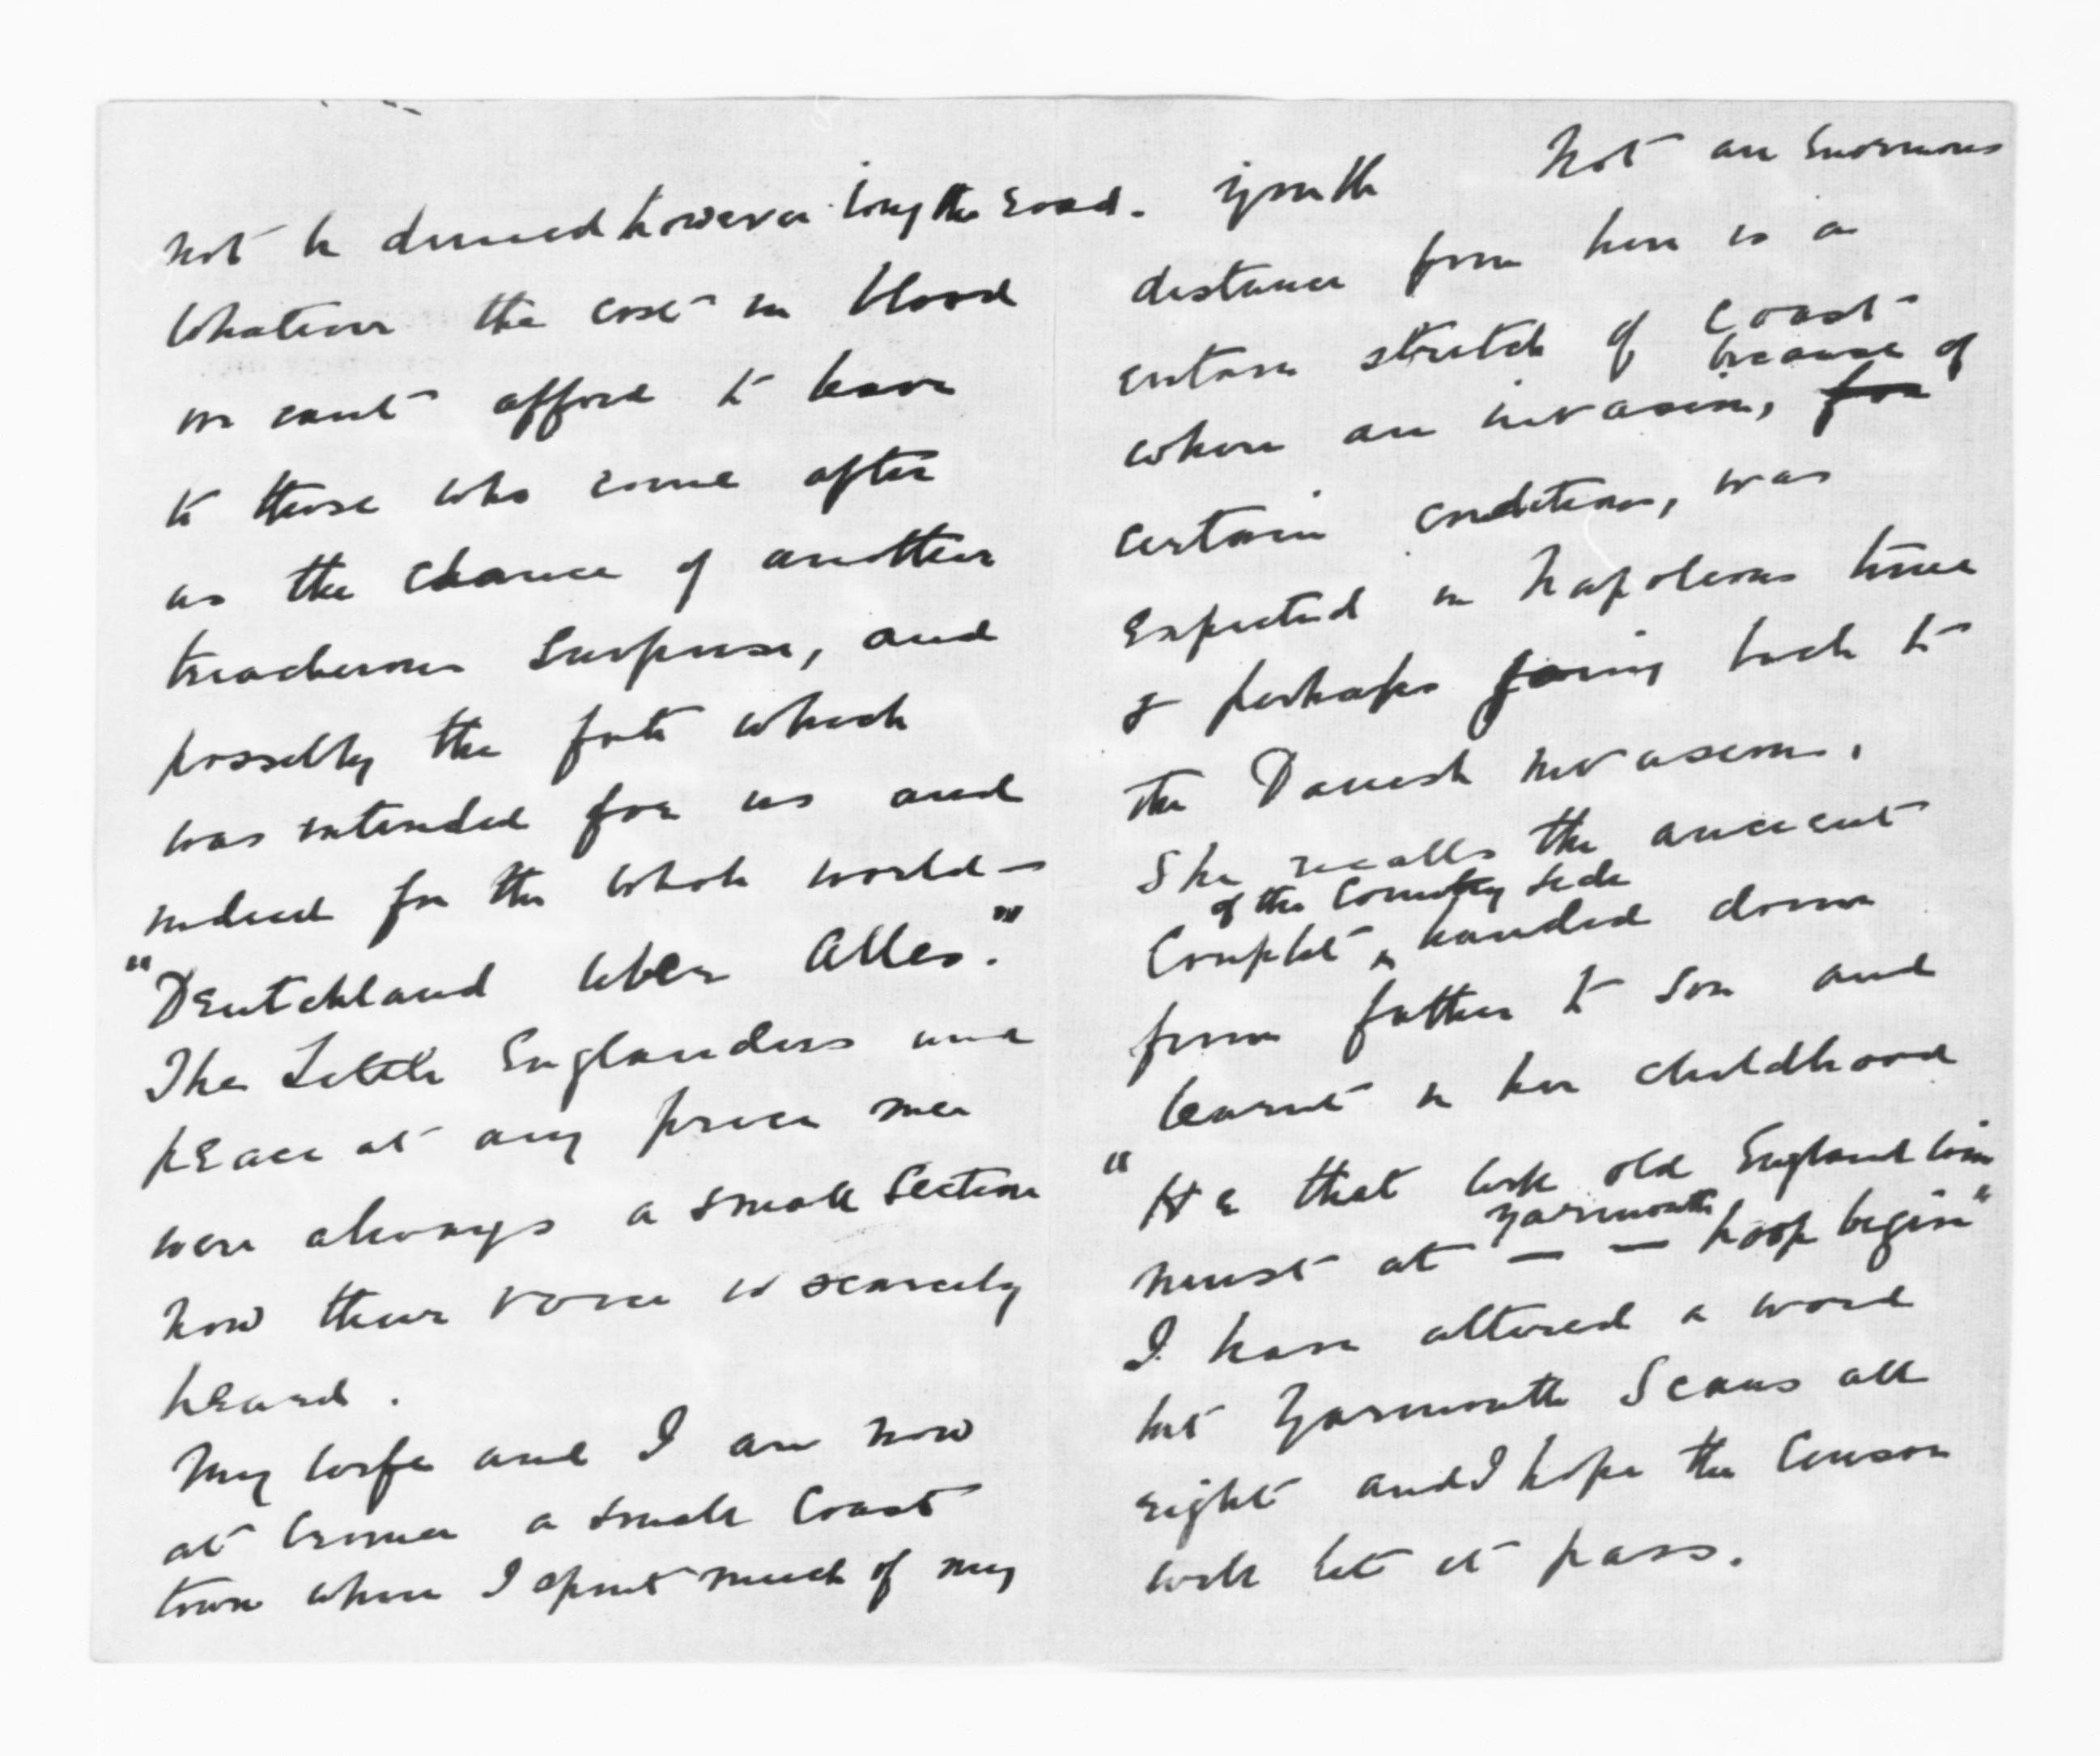 not be denied however long the road.
Whatever the cost in blood
we cant afford to leave
to those who come after
us the chance of another
treacherous surprise, and
possibly the fate which
was intended for us and
indeed for the whole world —
"Deutchland uber Alles."
The Little Englanders and
peace at any price men
were always a small section
now their voice is scarcely
heard.
My wife and I are now
at Cromer a small coast
town where I spent much of my
youth Not an enormous
distance from here is a
certain stretch of coast
where an invasion, for because of
certain conditions, was
expected in Napoleons time
& perhaps going back to
the Danish invasions.
She recalls the ancient
couplet of the country side handed down
from father to son and
learnt in her childhood
"He that will old England win
must at — — Yarmouth hoop begin"
I have altered a word
but Yarmouth scans all
right and I hope the Censor
will let it pass.